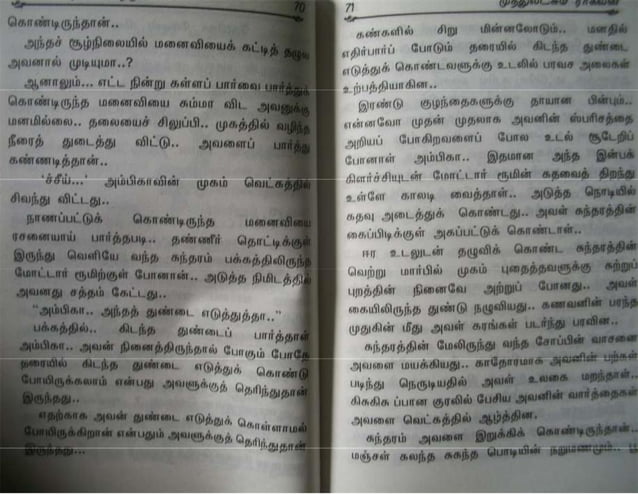 70
கொண்டிருந்தான்..
அந்தச் சூழ்நிலையில் மனைவியைக் கட்டித் தழுவ
அவனால் முடியுமா..?
ஆனாலும்... எட்ட நின்று கள்ளப் பார்வை பார்த்துக்
கொண்டிருந்த மனைவியை சும்மா விட அவனுக்கு
மனமில்லை.. தலையைச் சிலுப்பி.. முகத்தில் வழிந்த
நீரைத் துடைத்து விட்டு.. அவளைப் பார்த்து
கண்ணடித்தான்..
‘ச்சீய்...’ அம்பிகாவின் முகம் வெட்கத்தில்
சிவந்து விட்டது..
நாணப்பட்டுக் கொண்டிருந்த மனைவியை
ரசனையாய் பார்த்தபடி.. தண்ணீர் தொட்டிக்குள்
இருந்து வெளியே வந்த சுந்தரம் பக்கத்திலிருந்த
மோட்டார் ரூமிற்குள் போனான்.. அடுத்த நிமிடத்தில்
அவனது சத்தம் கேட்டது..
“அம்பிகா.. அந்தத் துண்டை எடுத்துத்தா..”
பக்கத்தில்.. கிடந்த துண்டைப் பார்த்தாள்
அம்பிகா.. அவன் நினைத்திருந்தால் போகும் போதே
தரையில் கிடந்த துண்டை எடுத்துக் கொண்டு
போயிருக்கலாம் என்பது அவளுக்குத் தெரிந்துதான்
இருந்தது..
எதற்காக அவன் துண்டை எடுத்துக் கொள்ளாமல்
போயிருக்கிறான் என்பதும் அவளுக்குத் தெரிந்துதான்
இருந்தது...
71 முத்துலட்சுமி ராகவன்
கண்களில் சிறு மின்னலோடும்.. மனதில்
எதிர்பார்ப் போடும் தரையில் கிடந்த துண்டை
எடுத்துக் கொண்டவளுக்கு உடலில் பரவச அலைகள்
உற்பத்தியாகின..
இரண்டு குழந்தைகளுக்கு தாயான பின்பும்..
என்னவோ முதன் முதலாக அவனின் ஸ்பரிசத்தை
அறியப் போகிறவளைப் போல உடல் சூடேறிப்
போனாள் அம்பிகா.. இதமான அந்த இன்பக்
கிளர்ச்சியுடன் மோட்டார் ரூமின் கதவைத் திறந்து
உள்ளே காலடி வைத்தாள்.. அடுத்த நொடியில்
கதவு அடைத்துக் கொண்டது.. அவள் சுந்தரத்தின்
கைப்பிடிக்குள் அகப்பட்டுக் கொண்டாள்..
ஈர உடலுடன் தழுவிக் கொண்ட சுந்தரத்தின்
வெற்று மார்பில் முகம் புதைத்தவளுக்கு சுற்றுப்
புறத்தின் நினைவே அற்றுப் போனது.. அவள்
கையிலிருந்த துண்டு நழுவியது.. கணவனின் பரந்த
முதுகின் மீது அவள் கரங்கள் படர்ந்து பரவின..
சுந்தரத்தின் மேலிருந்து வந்த சோப்பின் வாசனை
அவளை மயக்கியது.. காதோரமாக அவனின் பற்கள்
படிந்து நெருடியதில் அவள் உலகை மறந்தாள்..
கிசுகிசு ப்பான குரலில் பேசிய அவனின் வார்த்தைகள்
அவளை வெட்கத்தில் ஆழ்த்தின.
சுந்தரம் அவளை இறுக்கிக் கொண்டிருந்தான்..
மஞ்சள் கலந்த சுகந்த பொடியின் நறுமணமும்..